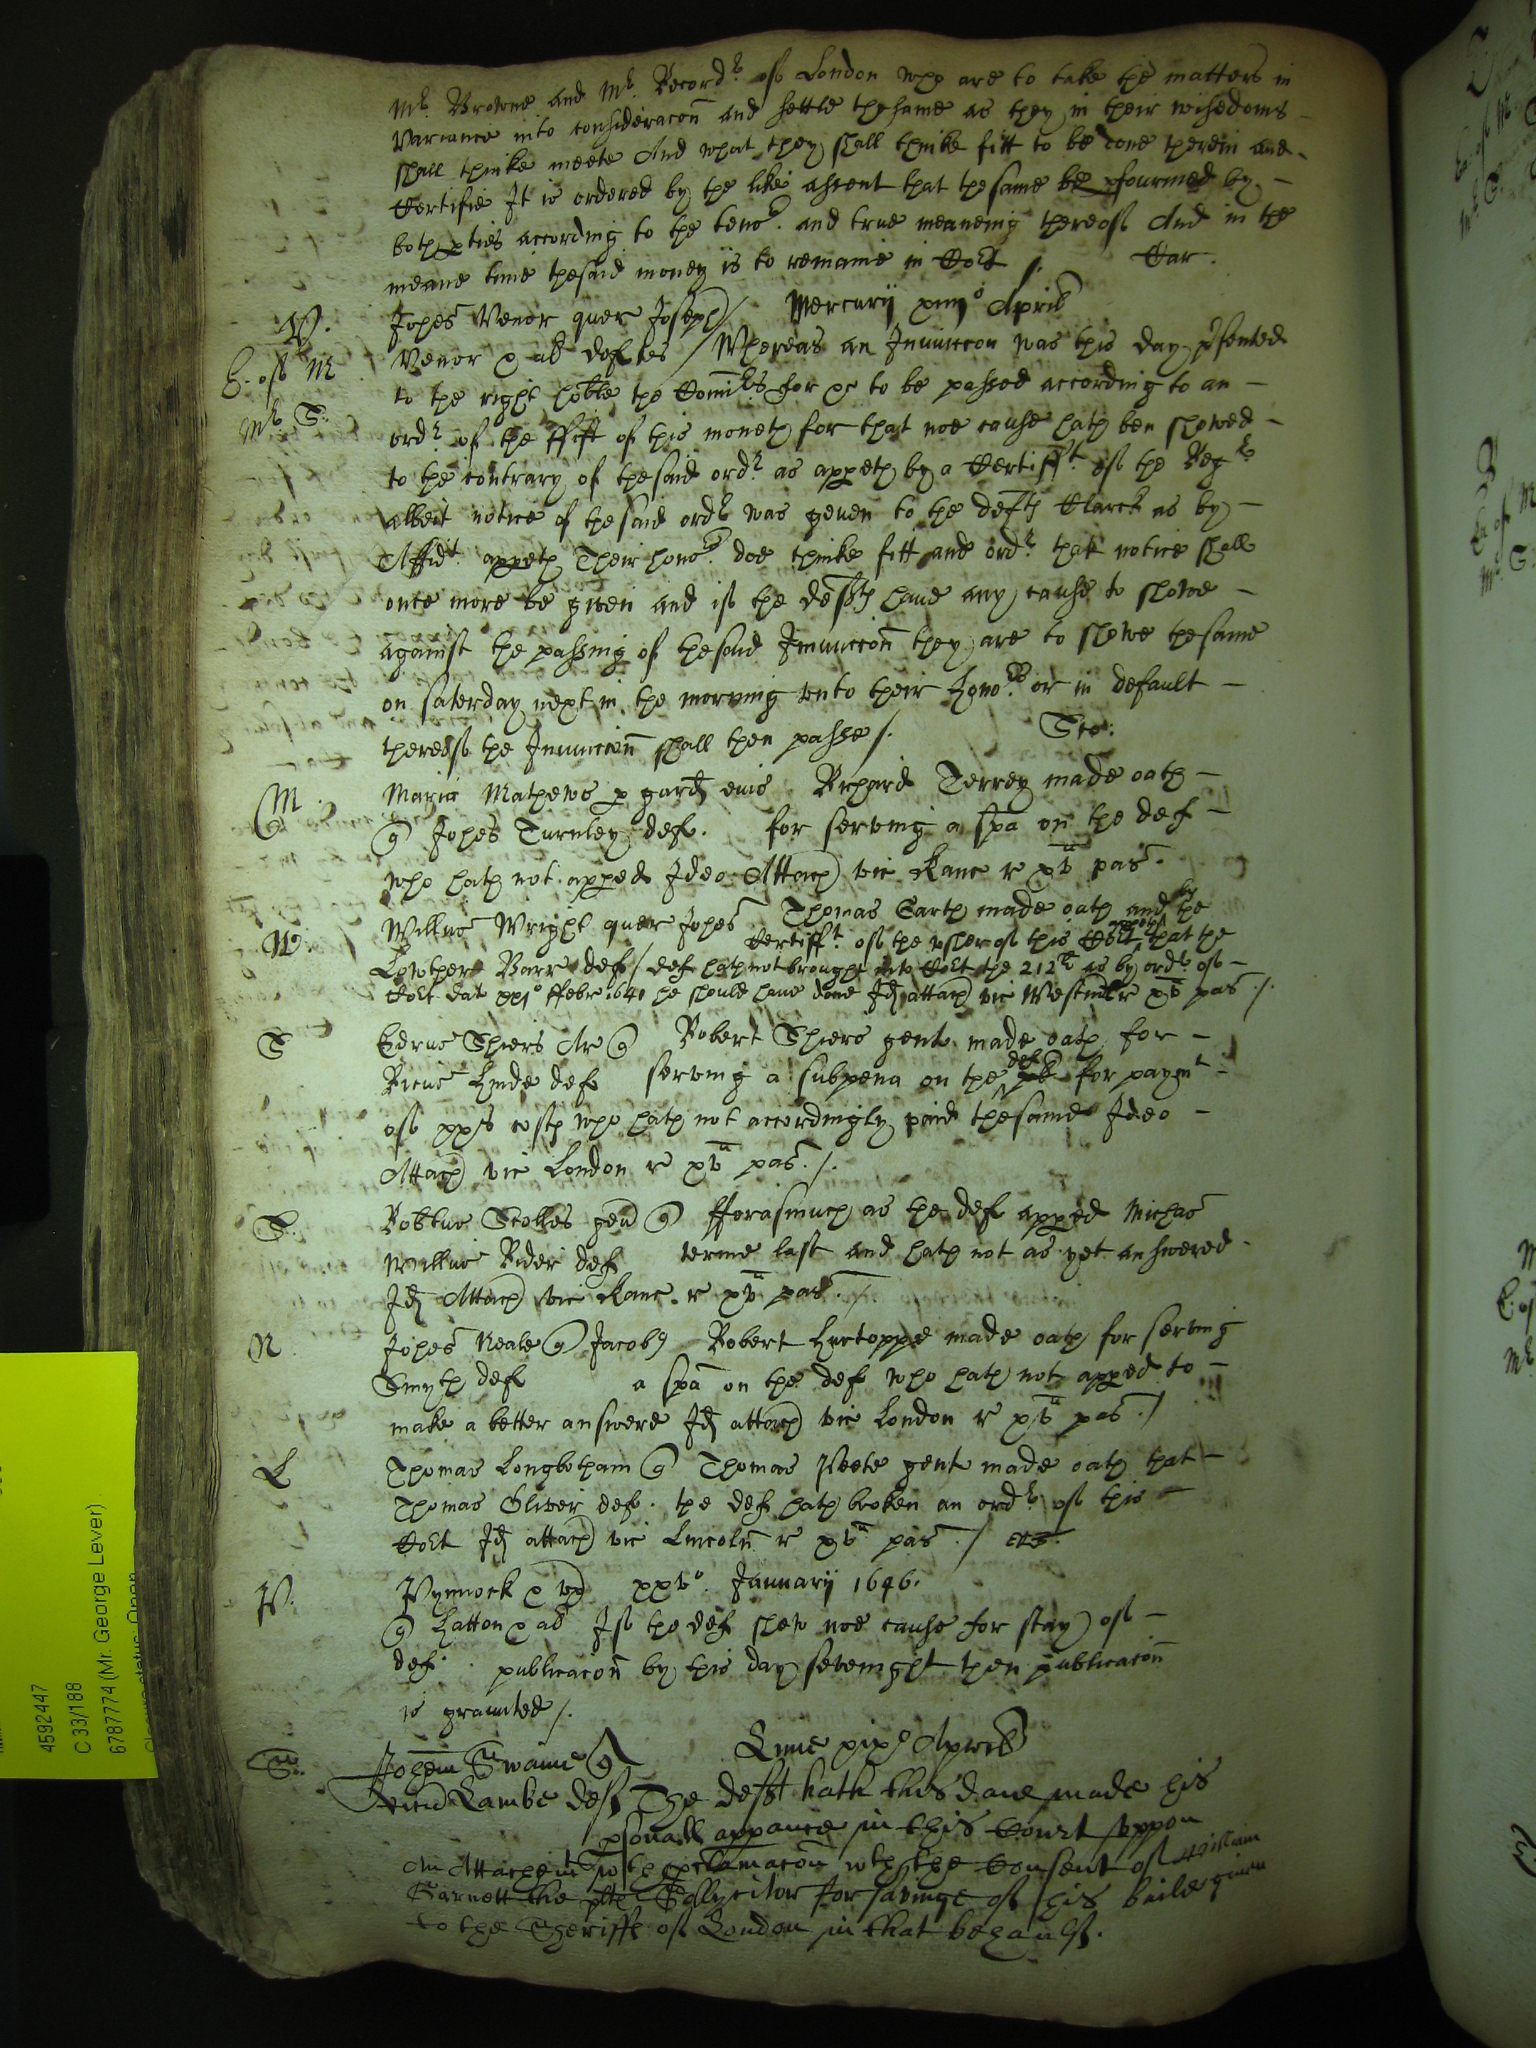 Mr. Browne and Mr. Recordr. of London who are to take the matters in
variance into consideracon and settle thesame as they in their wisedoms
shall thinke meete And what they shall thinke fitt to be done therein and
Certifie It is ordered by the like assent that thesame be pfourmed by
both pties according to the tenor. and true meaneing thereof And in the
meane time thesaid money is to remaine in Cort /. Car.
Mercurij xiiijo Aprilis
V. Johes Venor quer Joseph /
E: of M Venor & al deftes / Whereas an Iniunccon was this day pr̃sented
to the right hoble the Comrs. for &c to be passed according to an
Mr. S: ordr. of the ffift of this moneth for that noe cause hath ben shewed
to the contrary of thesaid ordr. as appeth by a Certifft. of the Regr
albeit notice of thesaid ordr was geven to the defts Clarck as by
Affidt. appeth Their honors. doe thinke fitt and ordr. that notice shall
once more be given and if the defts have any cause to shewe
against the passing of thesaid Iniunccon they are to shewe thesame
on saterday next in the morning vnto their honors. or in default
thereof the Iniunccon shall then passe /. Ste:
M. Maria Mathews p gard eius Richard Terrey made oath
Johes Turnley def. for serving a spa on the def
who hath not apped Ideo Attach vic Kanc r xva pas.
W. Willus Wright quer Johes Thomas Garth made oath and by the
Certifft. of the vsher of this Cort appeth that the
Lowther Barr def / def hath not brought into Cort the 212li as by ordr. of
Cort dat xxjo ffebr. 1640 he should have done Id attach vic Westmlr r xva pas /.
S Edrus Shiers Ar Robert Shiers gent made oath for
Ricus Linde def serving a subpena on the def for paymt
of xxs costs who hath not accordingly paid thesame Ideo
Attach vic London r xva pas /.
S. Robtus Scolles gen fforasmuch as the def apped Michas
Willus Rider def terme last and hath not as yet answered
Id Attach vic Kanc. r xva pas. /.
N. Johes Neale Jacob Robert made oath for serving
Smyth def a spa on the def who hath not apped to
make a better answere Id attach vic London r xva pas. /
L Thomas Longbotham Thomas Peete gent made oath that
Thomas Oliver def. the def hath broken an ordr. of this
Cort Id attach vic Lincoln r xva pas. /
P. Pynnock & vx xxvo. January 1646.
Hatton & al If the def shew noe cause for stay of
def. publicacon by this day sevenight then publicacon
is graunted /.
Lune xixo Aprilis
S. Johem Swaine
Lambe deft The defft hath this daie made his
psonall appance in this Court vppon
An Attachemt wth pclamacon wth the Consent of William
Garnett the plts Sollycitor for savinge of his baile given
to the Sheriffe of London in that behaulf.
4592447
C 33/188
6787774 (Mr. George Lever)